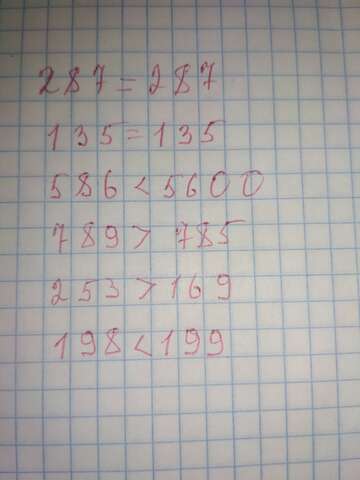 287 = 287
135 = 135
586 < 5600
789 > 785
253 > 169
198 < 199